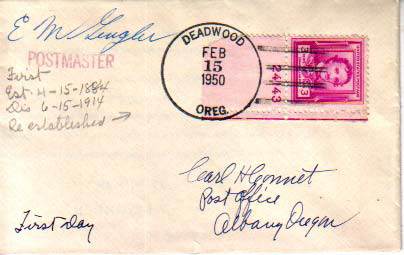 E M Gingler
POSTMASTER
First
Est. 4-15-1884
Dis 6-15-1914
Re established →
DEADWOOD
FEB
15
1950
OREG.
24143
Carl H Connet
Post Office
Albany Oregon
First Day